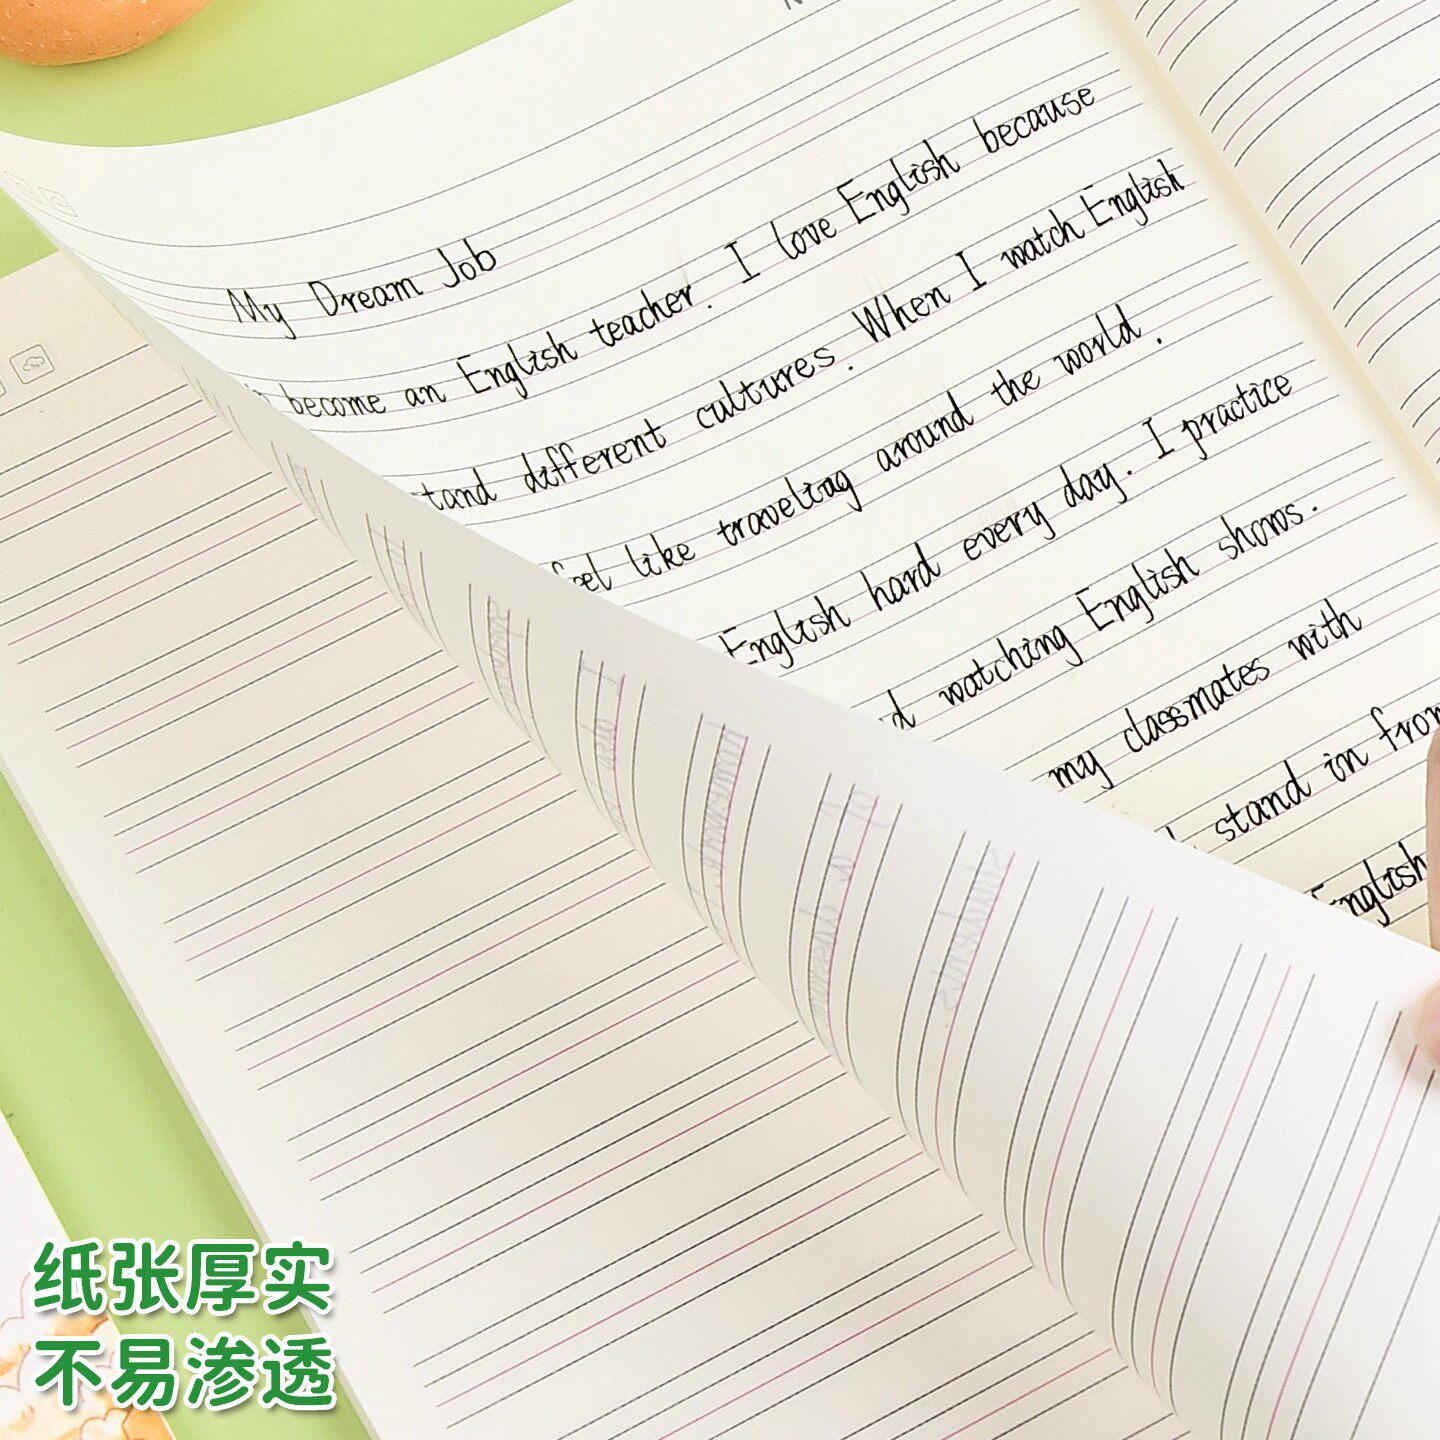 My Dream Job
become an English teacher. I love English because
tand different cultures. When I watch English
feel like traveling around the world.
English hard every day. I practice
d watching English shows.
my classmates with
stand in fron
English
纸张厚实
不易渗透